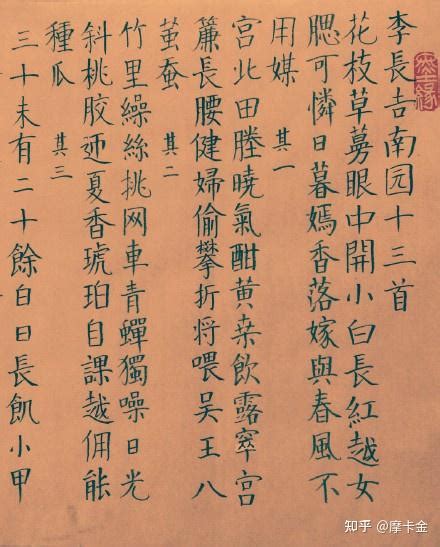 李長吉南园十三首
花枝草蔓眼中開小白長紅越女
腮可憐日暮嫣香落嫁與春風不
用媒 其一
宫北田塍曉氣酣黄桒飲露窣宫
簾長腰健婦偷攀折将喂吴王八
茧蚕 其二
竹里繰絲挑网車青蟬獨噪日光
斜桃膠迎夏香琥珀自課越佣能
種瓜 其三
三十未有二十餘白日長飢小甲
知乎 @摩卡金